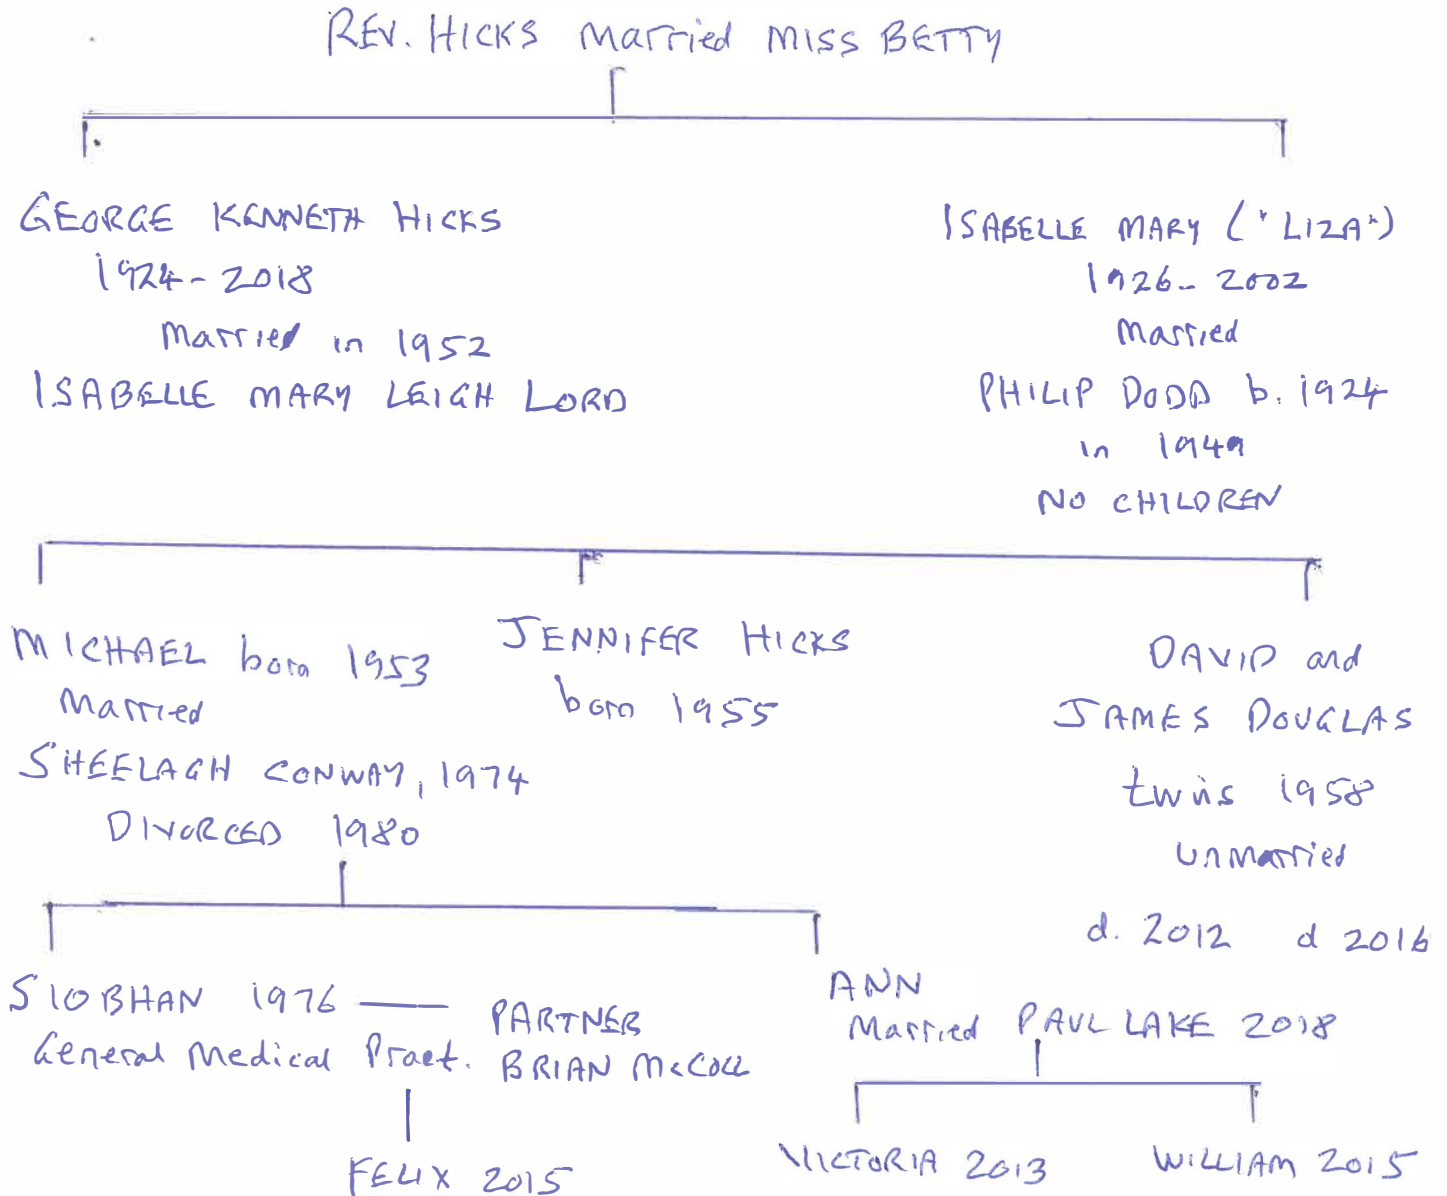 REV. HICKS married MISS BETTY
GEORGE KENNETH HICKS
1924-2018
married in 1952
ISABELLE MARY LEIGH LORD
ISABELLE MARY ("LIZA")
1926-2002
married
PHILIP DODD b. 1924
in 1949
NO CHILDREN
MICHAEL born 1953
married
SHEELAGH CONWAY, 1974
DIVORCED 1980
JENNIFER HICKS
born 1955
DAVID and
JAMES DOUGLAS
twins 1958
unmarried
d. 2012 d 2016
SIOBHAN 1976 — PARTNER
General Medical Pract. BRIAN McCOLL
FELIX 2015
ANN
Married PAUL LAKE 2018
VICTORIA 2013
WILLIAM 2015